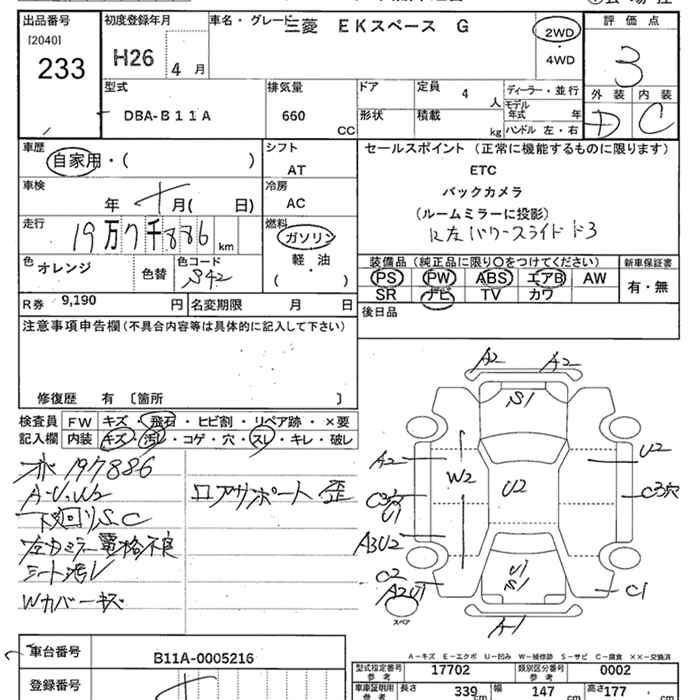 出品番号
[2040]
233
初度登録年月
H26 4 月
車名・グレード 三菱 EKスペース G
2WD
4WD
評価点
3
外装 内装
D C
型式
DBA-B11A
排気量
660 CC
ドア
形状
定員 4 人
積載 kg
ディーラー・並行
モデル年式 年
ハンドル 左・右
車歴
自家用・( )
シフト
AT
車検
年 月( 日)
冷房
AC
走行
19万7千886 km
燃料
ガソリン
軽・油
( ・ )
色 オレンジ
色替
色コード
S42
R券 9,190 円
名変期限 月 日
セールスポイント(正常に機能するものに限ります)
ETC
バックカメラ
(ルームミラーに投影)
左パワースライドド3
装備品(純正品に限り○をつけてください)
新車保証書
PS PW ABS エアB AW
SR ナビ TV カワ
有・無
後日品
注意事項申告欄(不具合内容等は具体的に記入して下さい)
修復歴 有 〔箇所 〕
検査員
記入欄
FW キズ・飛石・ヒビ割・リペア跡・×要
内装 キズ・汚レ・コゲ・穴・スレ・キレ・破レ
197886
A・U・W2
下廻りS.C
左カミラー電格不良
シート汚レ
Wカバーキズ
ロアサポート歪
A2 A2
S1
A2
W2
U2
U2
C3穴
U1
A3U2
C2
A2U1
U1
S1
C1
A1
スペア
A-キズ E-エクボ U-凹み W-補修跡 S-サビ C-腐食 ××-交換済
車台番号 B11A-0005216
登録番号
型式指定番号 参考 17702
類別区分番号 参考 0002
車車証明用 参考
長さ 339 cm
幅 147 cm
高さ 177 cm